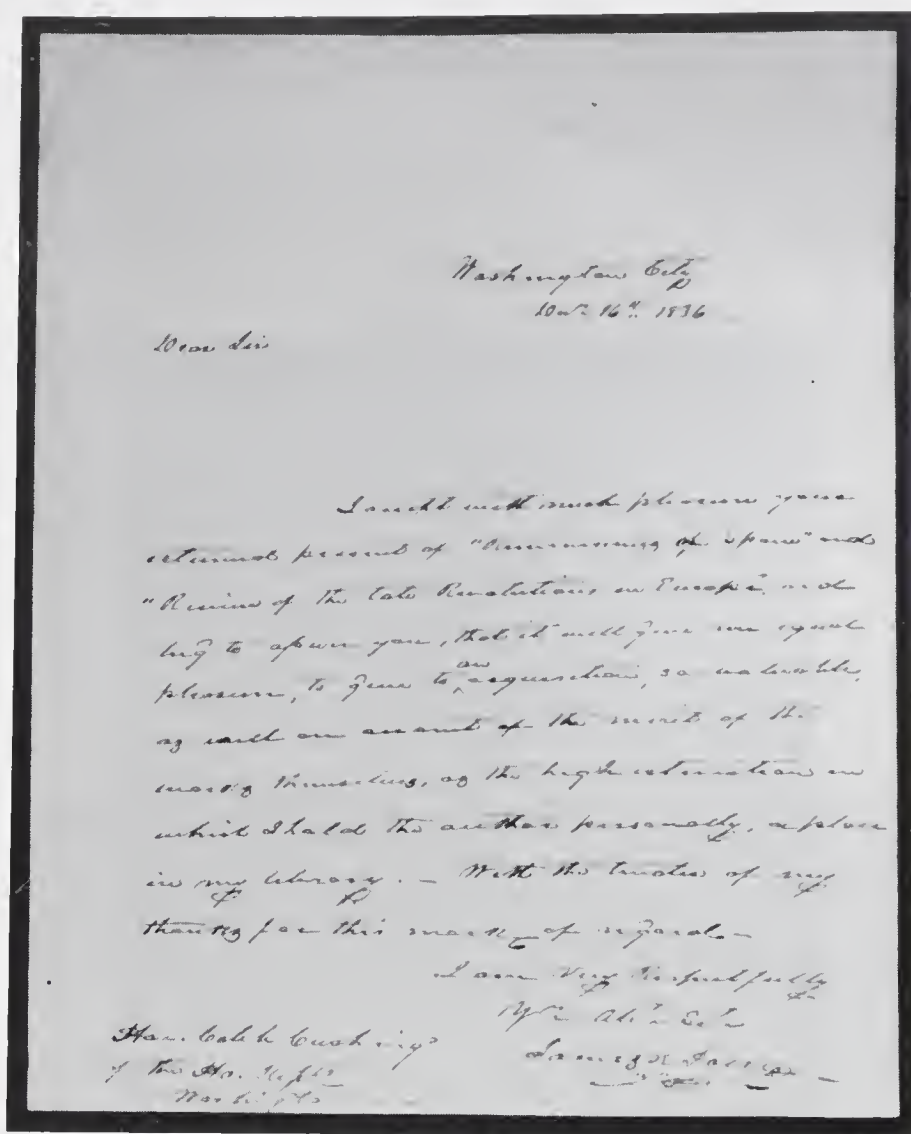 Washington City
Decr. 16th. 1836
Dear Sir
I accept with much pleasure your
esteemed present of "Reminiscences of Spain" and
"Review of the late Revolutions in Europe", and
beg to assure you, that it will give me equal
pleasure, to give to an acquisition, so valuable,
as well on account of the merit of the
works themselves, as the high estimation in
which I hold the author personally, a place
in my library. — With the tender of my
thanks for this mark of regard —
I am Very Respectfully
Yr. Obt. St.
James
Hon. Caleb Cushing
of the Ho. Repts
Washington